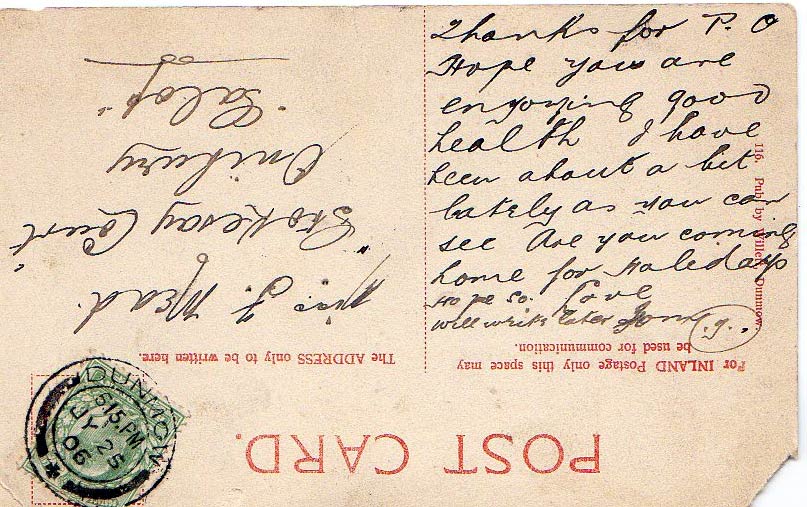 Thanks for P. O
Hope you are
enjoying good
health I have
been about a bit
lately as you can
see Are you coming
home for Holidays
Hope so. Love
will write later
.g.
116. Pub. by Willett, Dunmow.
For INLAND Postage only this space may
be used for communication.
POST CARD.
The ADDRESS only to be written here.
J. Mead.
"Stokesay Court"
Onibury
"Salop"
DUNMOW
615.PM
JY 25
06